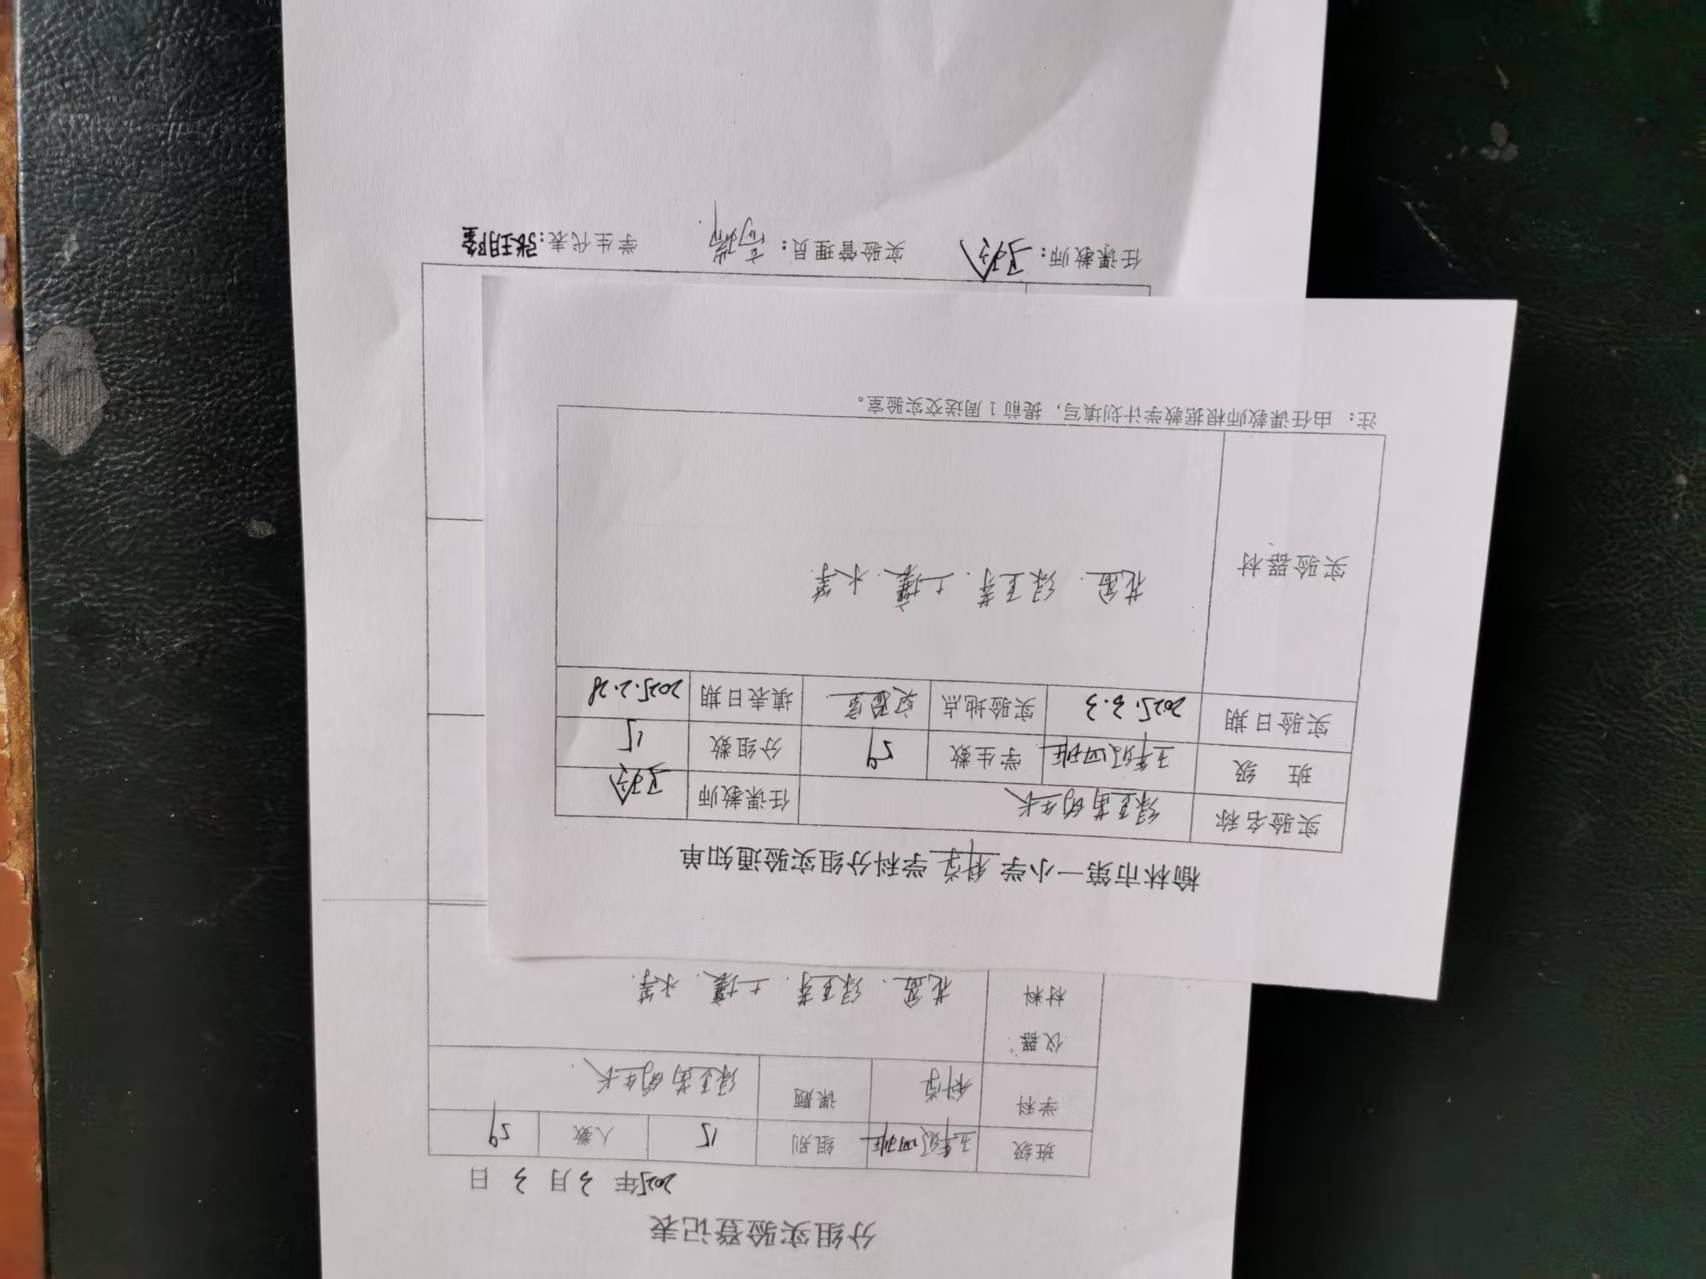 榆林市第一小学 科学 学科分组实验通知单
实验名称 绿豆苗的生长 任课教师
班 级 五年级四班 学生数 59 分组数 15
实验日期 2025.3.3 实验地点 实验室 填表日期 2025.2.28
实验器材 花盆、绿豆芽、土壤、水等
注： 由任课教师根据教学计划填写，提前1周送交实验室。
分组实验登记表
2025年 3月 3 日
班级 五年级四班 组别 15 人数 59
学科 科学 课题 绿豆苗的生长
仪器
材料 花盆、绿豆芽、土壤、水等
任课教师： 实验管理员： 学生代表：